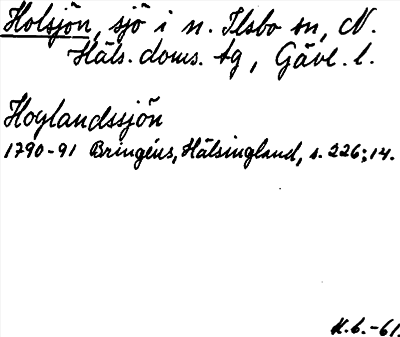 Holsjön, sjö i n. Ilsbo sn, N.
Häls. doms. tg, Gävl. l.
Hoglandssjön
1790-91 Bringéus, Hälsingland, s. 226; 14.
K.b.-61.